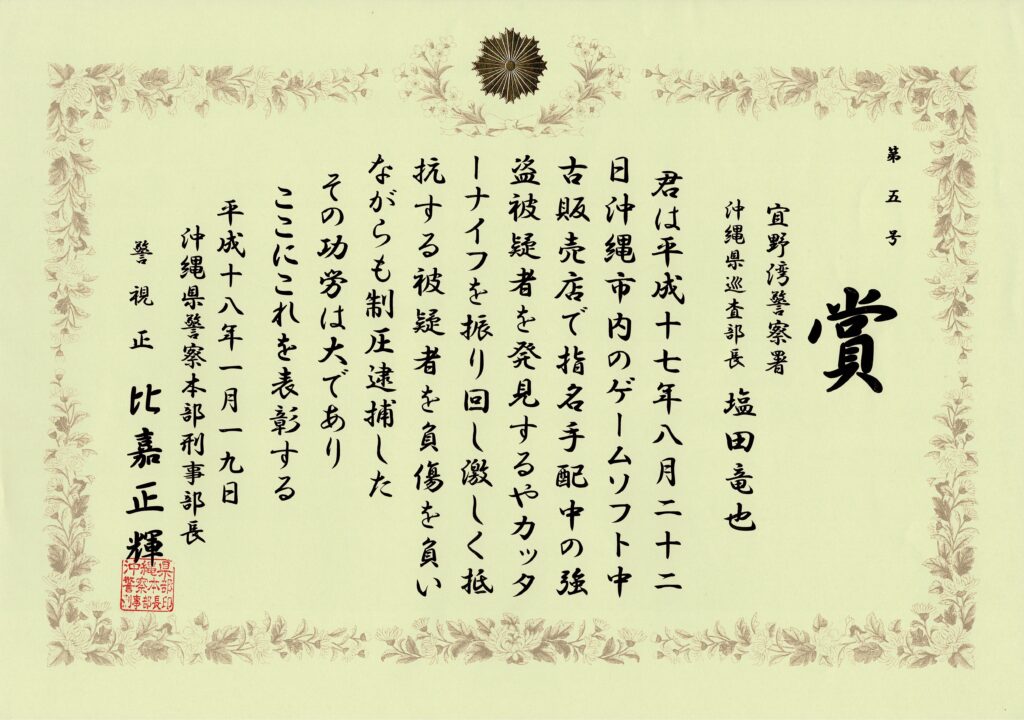 第五号
賞
宜野湾警察署
沖縄県巡査部長 塩田竜也
君は平成十七年八月二十二
日沖縄市内のゲームソフト中
古販売店で指名手配中の強
盗被疑者を発見するやカッタ
ーナイフを振り回し激しく抵
抗する被疑者を負傷を負い
ながらも制圧逮捕した
その功労は大であり
ここにこれを表彰する
平成十八年一月一九日
沖縄県警察本部刑事部長
警視正 比嘉正輝
沖縄県
警察本部
刑事部長印